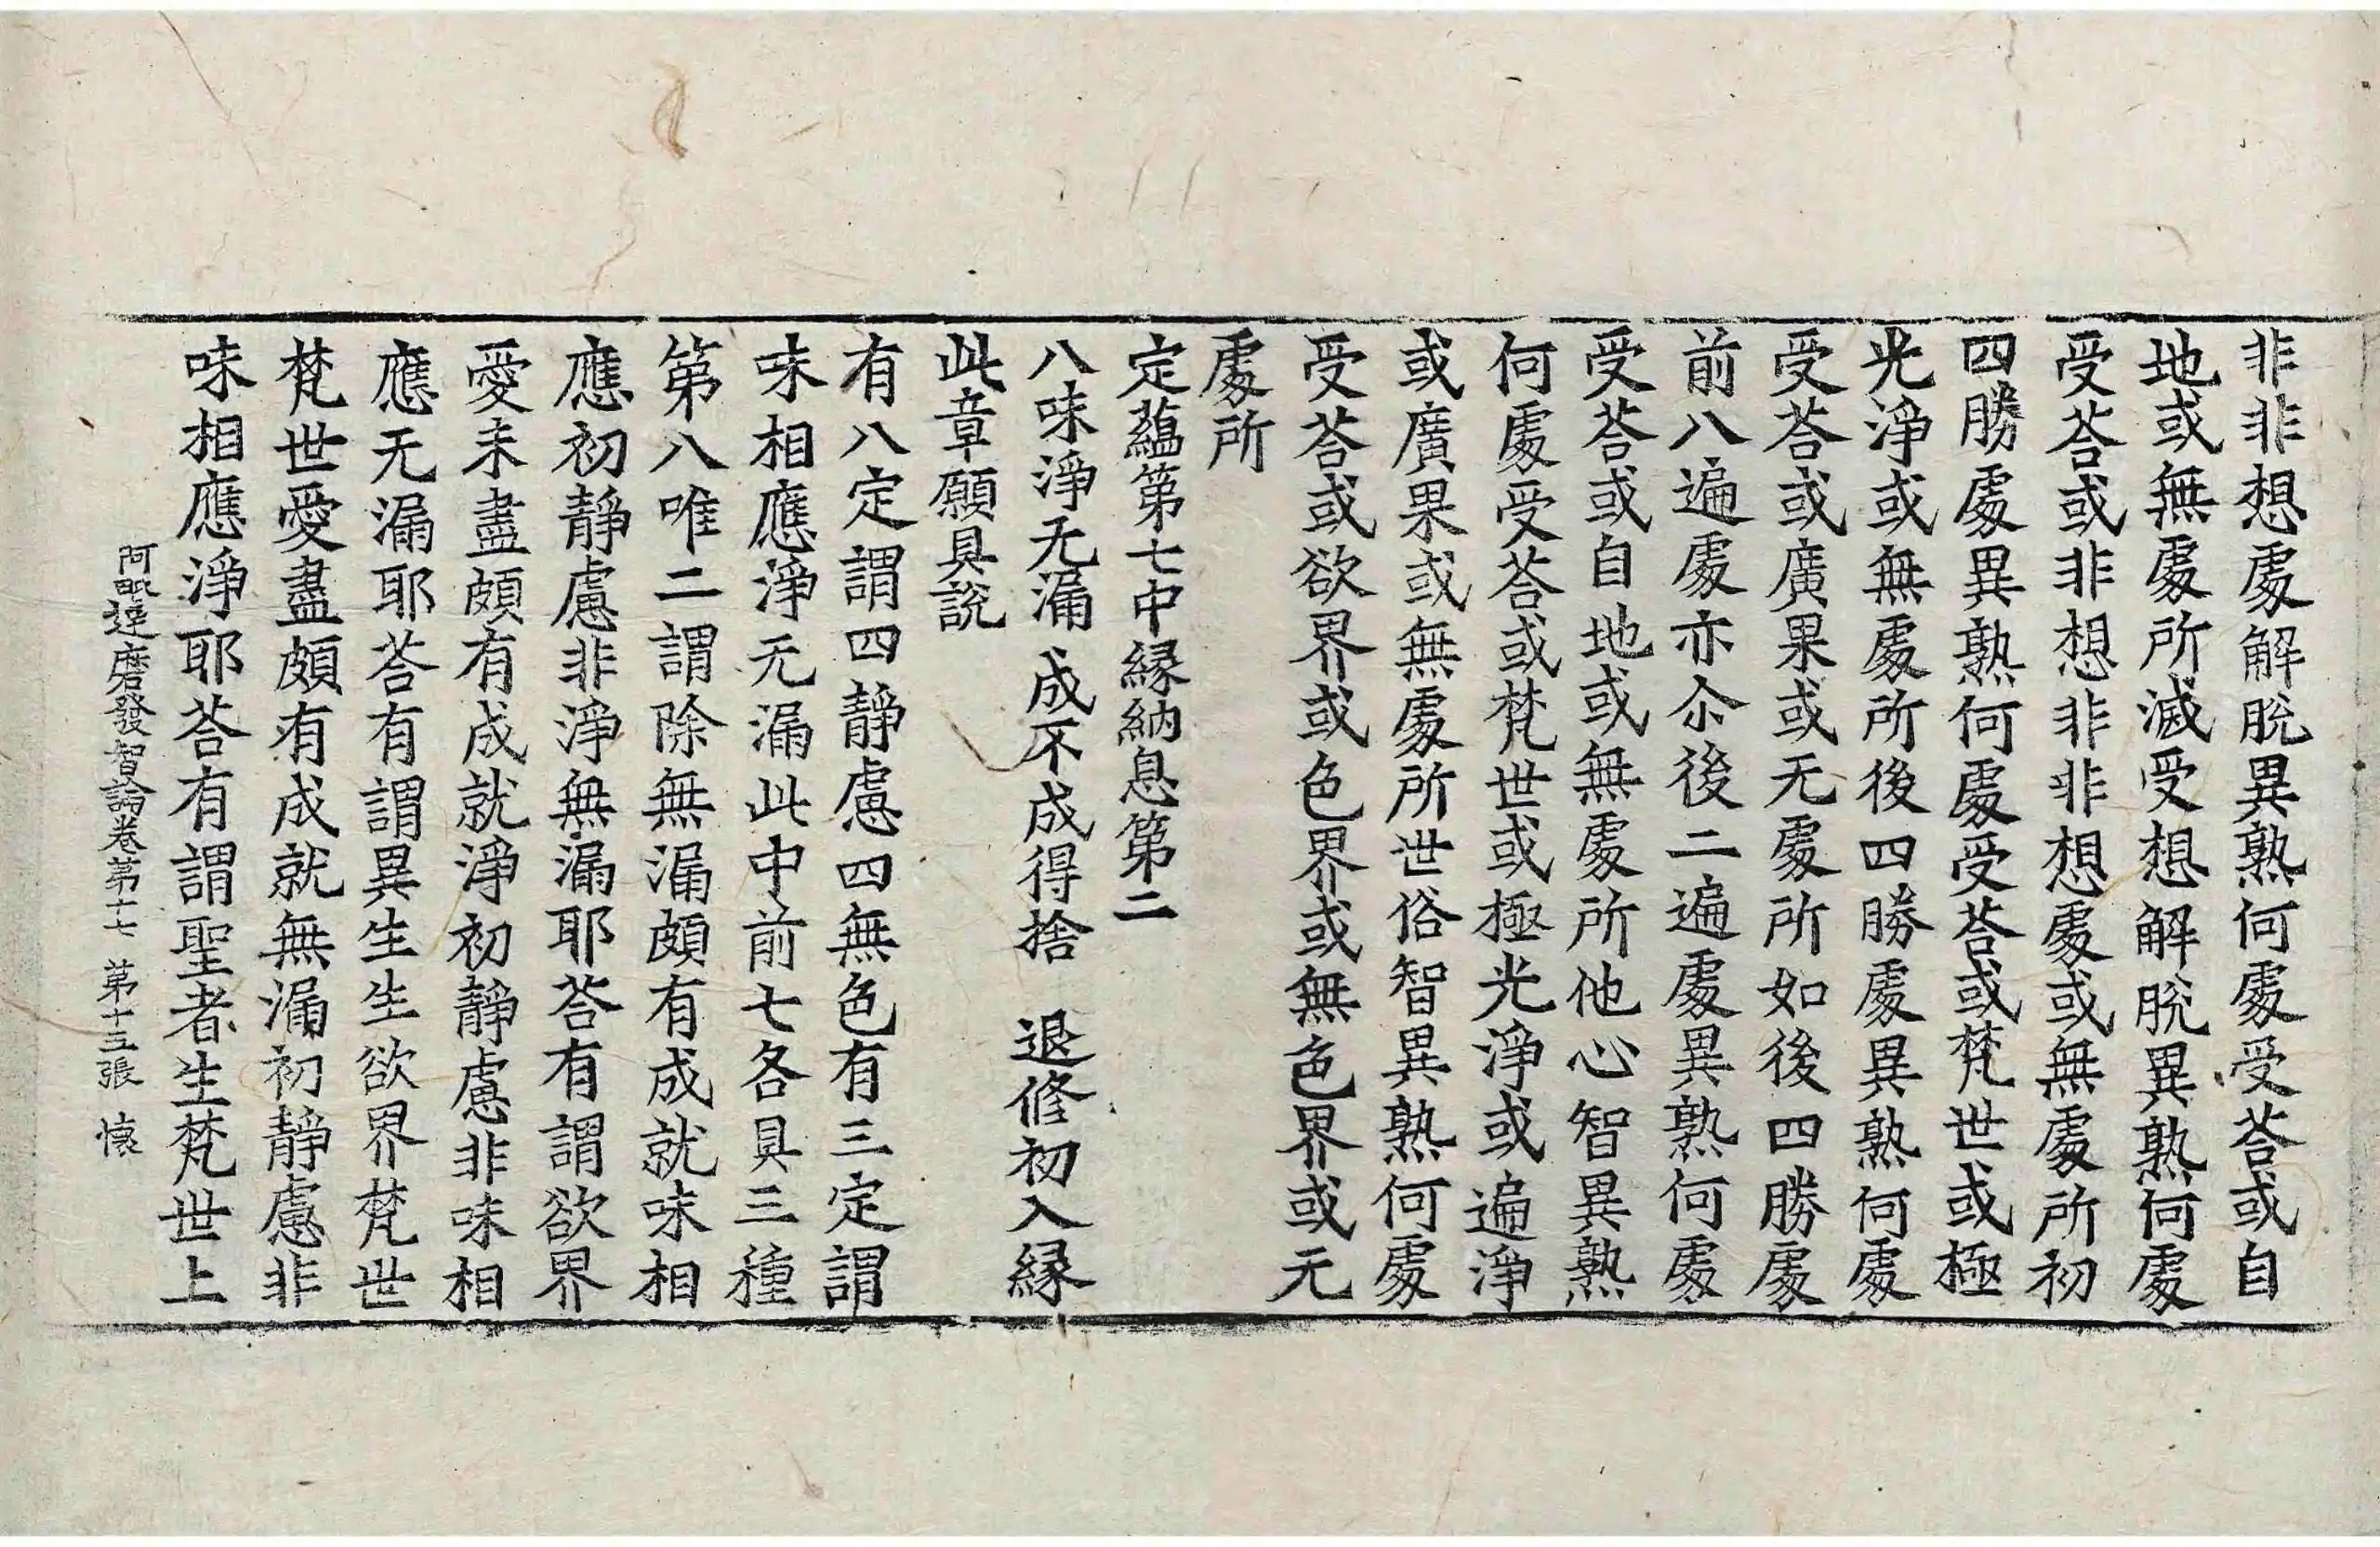 非非想處解脫異熟何處受荅或自
地或無處所滅受想解脫異熟何處
受荅或非想非非想處或無處所初
四勝處異熟何處受荅或梵世或極
光淨或無處所後四勝處異熟何處
受荅或廣果或无處所如後四勝處
前八遍處亦尒後二遍處異熟何處
受荅或自地或無處所他心智異熟
何處受荅或梵世或極光淨或遍淨
或廣果或無處所世俗智異熟何處
受荅或欲界或色界或無色界或无
處所
定蘊第七中緣納息第二
八味淨无漏 成不成得捨 退修初入緣
此章願具說
有八定謂四靜慮四無色有三定謂
味相應淨无漏此中前七各具三種
第八唯二謂除無漏頗有成就味相
應初靜慮非淨無漏耶荅有謂欲界
愛未盡頗有成就淨初靜慮非味相
應无漏耶荅有謂異生生欲界梵世
梵世愛盡頗有成就無漏初靜慮非
味相應淨耶荅有謂聖者生梵世上
阿毗達磨發智論卷苐十七 苐十五張 懷